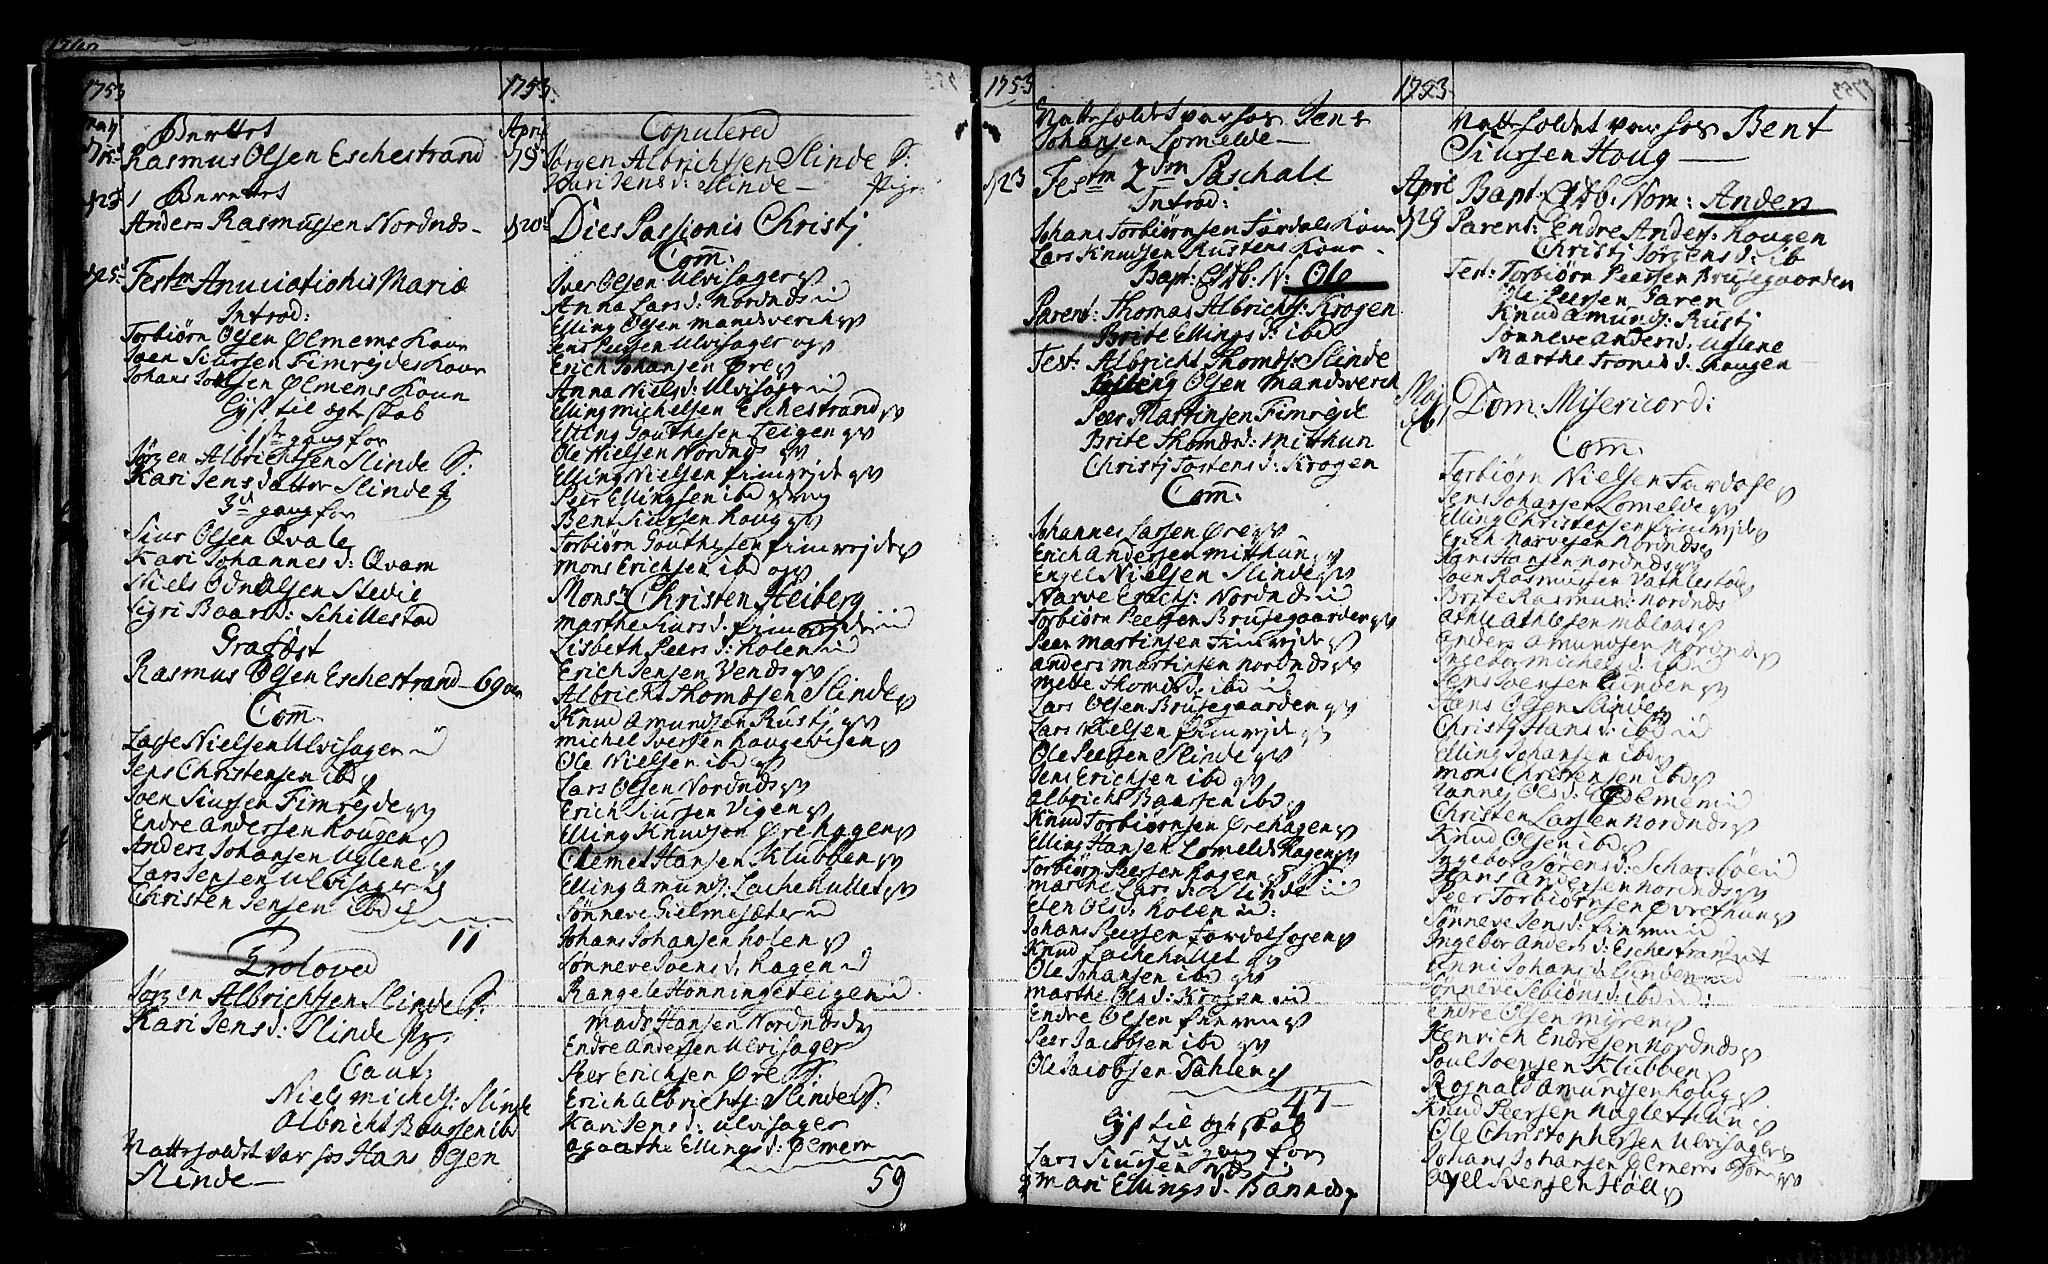 1753
Berettet
Rasmus Olsen Eschestrand
Berettet
Anders Rasmussen Nordnds
Festm Anuciationis Mariæ
Introd:
Torbiørn Olsen Ølmems Kone
Soen Siursen Fimrejdes Kone
Johans Ølmens Kone
Lyst til ægteskab
1ste gang for
Jørgen Albrichtsen Slinde S:
Kari Jensdatter Slinde
3d gang for
Siur Olsen Qvale
Kari Johannes d: Qvam
Niels Stedie
Sigri Baards d: Schillestad
Grafæst
Rasmus Olsen Eschestrand 69
Com.
Lasse Nielsen Ulvisager
Jens Christensen ibd
Soen Siursen Fimrejde
Endre Andersen Hougen
Anders Johansen Uglene
Lars Jensen Ulvisager
Christen Jensen ibd
11
Troloved
Jørgen Albrichtsen Slinde S:
Kari Jens d: Slinde
Caut:
Niels Michels: Slinde
Albricht Baarsen ibd
Natteholdet var hos Hans Olsen
Slinde
1753
April
Copulered
19 Jørgen Albrichtsen Slinde S:
Kari Jens d: Slinde
20 Dies Passionis Christj
Com:
Iver Olsen Ulvisager
Anna Lars d: Nordnds
Elling Olsen Mandsverch
Jens Ulvisager
Erich Johansen Øre
Anna Niels d: Ulvisager
Elling Michelsen Eschestrand
Elling Gouthesen Teigen
Ole Nielsen Nordnds
Elling Nielsen Fimrejde
Peer Ellingsen ibd
Bent Siursen Houg
Torbiørn Gouthesen Fimrejde
Mons Erichsen ibd
Monsr Christen Heiberg
Marthe Siurs d:
Lisbeth Peers d: Holen
Erich Jensen Vends
Albricht Thomæsen Slinde
Knud Amundsen Rustj
Michel Iversen Hougevisen
Ole Nielsen ibd
Lars Olsen Nordnds
Erich Siursen Vigen
Elling Knudsen Ørehagen
Clemet Hansen Klubben
Elling Amunds: Lachehullet
Sønneve Gielmesæter
Johans Johansen Holen
Sønneve Soens d: Hagen
Rangele Hønningeteigen
Mads Hansen Nordnds
Endre Andersen Ulvisager
Peer Erichsen Øre
Erich Albrichts: Slinde S:
Kari Jens d: Ulvisager
Agaathe Ellings d: Ølmem
59
1753
Natteholdet var hos Jens
Johansen Lomelde
23 Festm 2dm Paschale
Introd:
Johans Torbiørnsen Fardals Kone
Lars Knudsen Rustens Kone
Bapt: N: Ole
Parent: Thomas Albrichts: Krogen
Brite Ellings d: ibd
Test: Albricht Thomæs: Slinde
Olsen Mandsverch
Peer Martinsen Fimrejde
Brite Thomæs d: Mithun
Christj Tostens d: Krogen
Com:
Johannes Larsen Øre
Erich Andersen Mithun
Engel Nielsen Slinde
Narve Erichs: Nordnds
Torbiørn Peersen Brusegaarden
Peer Martinsen Fimrejde
Anders Martinsen Nordnds
Mette Thomæs d: ibd
Lars Olsen Brusegaarden
Lars Nielsen Fimrejde
Ole Peersen Slinde
Jens Erichsen ibd
Albricht Baarsen ibd
Knud Torbiørnsen Ørehagen
Elling Hansen Lomeldehagen
Torbiørn Peersen Hagen
Marthe Lars d: Slinde
Elen Ols d: Holen
Johans Peersen
Knud Lachehullet
Ole Johansen ibd
Marthe Ols d: Krogen
Endre Olsen Fimren
Peer Jacobsen ibd
Ole Jacobsen Dahlen
47
Lyst til ægteskab
for
Lars Siursen
Mari Ellings d:
1753
Natteholdet var hos Bent
Siursen Houg
April
29 Bapt: Nom: Anders
Parent: Endre Anders: Hougen
Christj Jørgens d: ib
Test: Torbiørn Peersen Brusegaarden
Ole Peersen Garen
Knud Amunds: Rustj
Sønneve Anders d: Uglene
Marthe d: Hougen
Maj
6 Dom: Misericord:
Com.
Torbiørn Nielsen Fardal
Jens Johansen Lomelde
Elling Christensen Fimrejde
Erich Narvesen Nordnds
Hans Hansen Nordnds
Soen Rasmussen
Brite Rasmus d: Nordnds
Anders Amundsen Nordnds
Ingebor Michels d: ibd
Jens Soensen Lunden
Hans Olsen Slinde
Christj Hans d: ibd
Elling Johansen ibd
Mons Christensen ibd
Ols d: Ølmem
Christen Larsen Nordnds
Knud Olsen ibd
Ingebor Sørens d:
Hans Andersen Nordnds
Peer Torbiørnsen Øvrethun
Sønneve Jens d: Fimren
Ingebor Anders d: Eschestrand
Anni Johans d: Lunden
Sønneve d: ibd
Endre Olsen Myren
Henrich Endresen Nordnds
Poul Soensen Klubben
Rognald Amundsen Houg
Knud Peersen Naglethun
Ole Christophersen Ulvisager
Johans Johansen Ølmem
Axel Svensen Høll